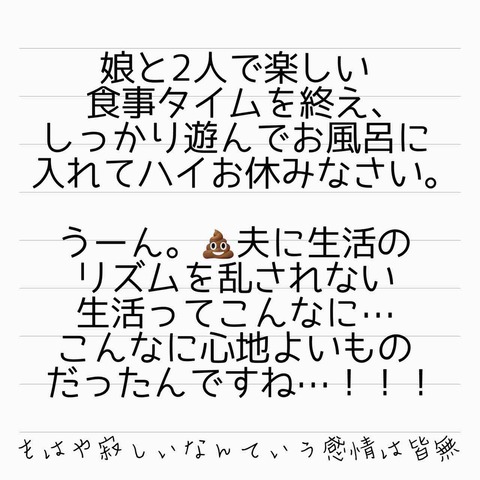 娘と2人で楽しい
食事タイムを終え、
しっかり遊んでお風呂に
入れてハイお休みなさい。
うーん。💩夫に生活の
リズムを乱されない
生活ってこんなに…
こんなに心地よいもの
だったんですね…！！！
もはや寂しいなんていう感情は皆無